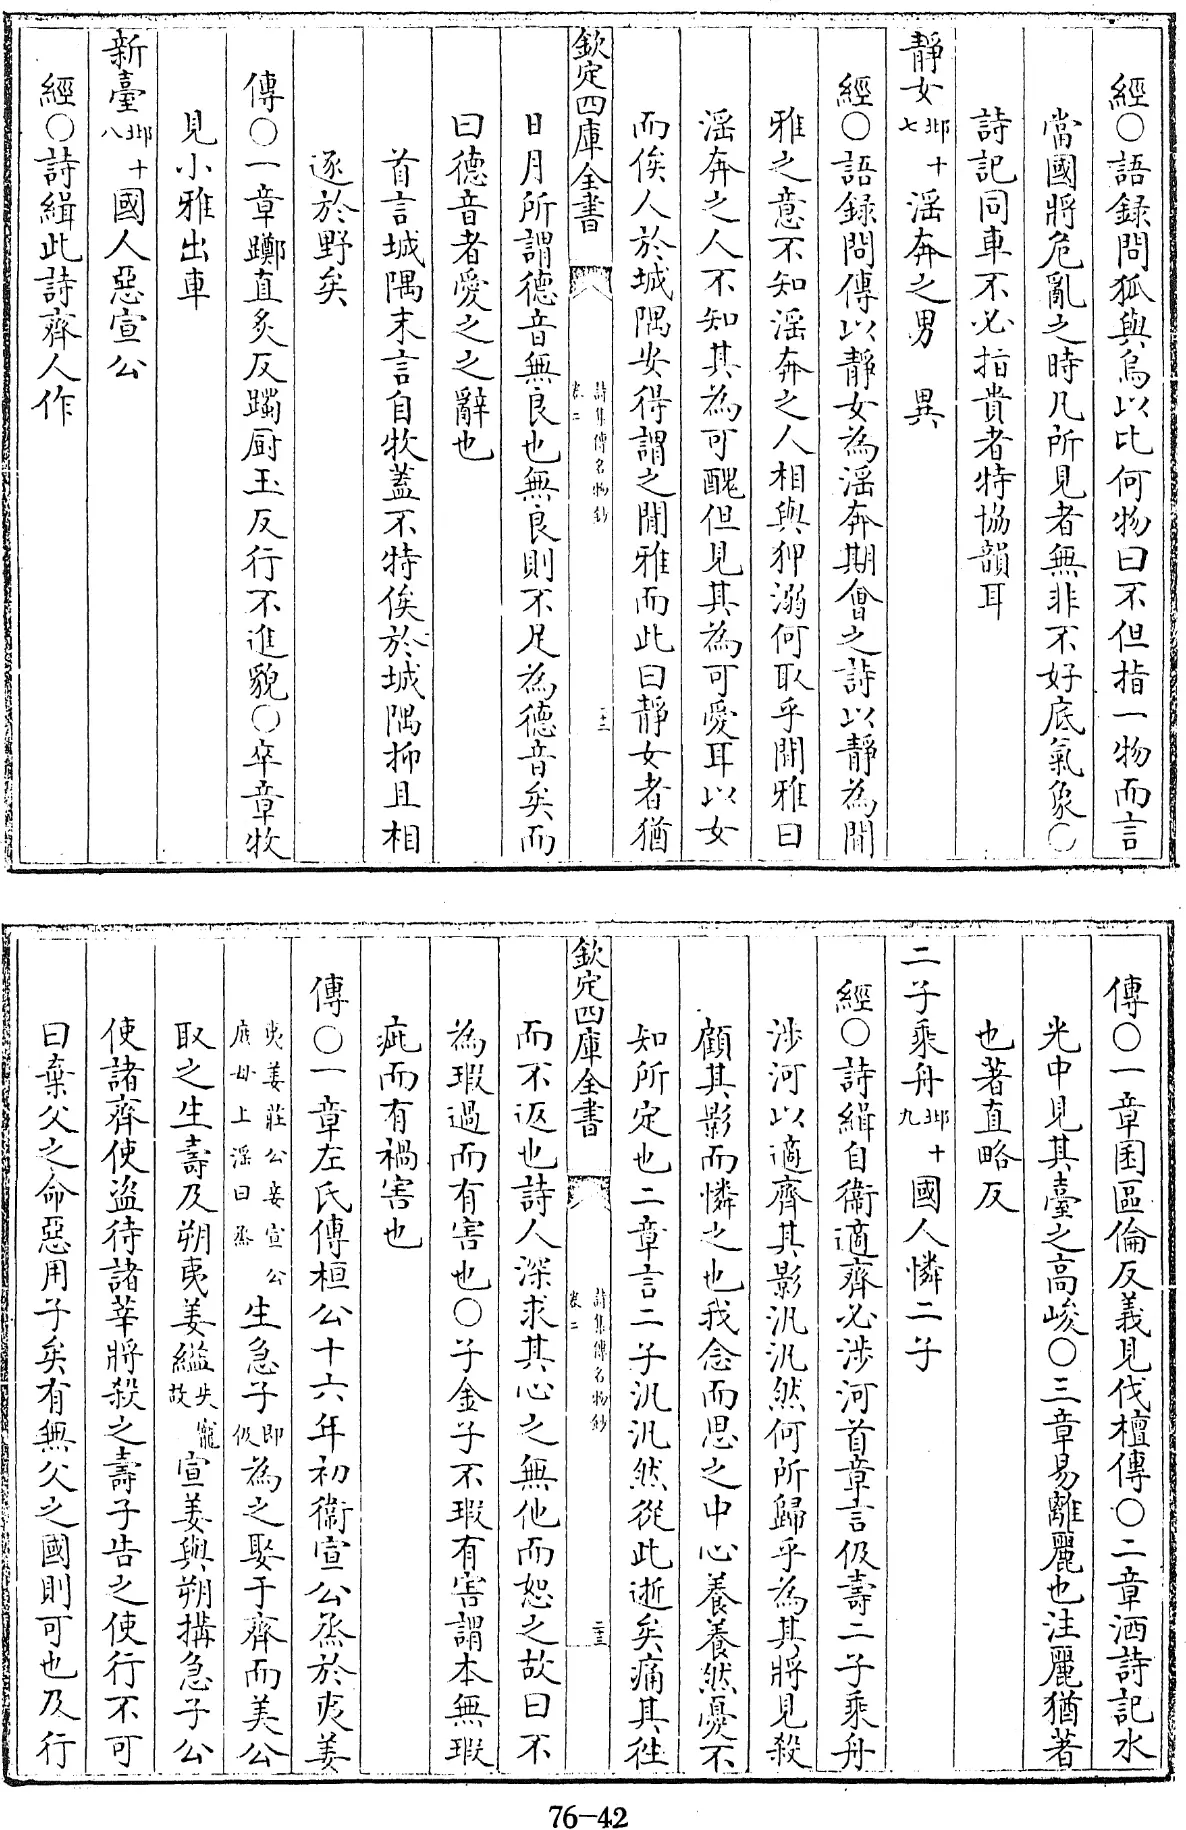 經○語録問狐與烏以比何物曰不但指一物而言
當國將危亂之時凡所見者無非不好底氣象○
詩記同車不必指貴者特協韻耳
靜女邶十七淫奔之男　異
經○語録問傳以靜女為淫奔期會之詩以靜為閒
雅之意不知淫奔之人相與狎溺何取乎閒雅曰
淫奔之人不知其為可醜但見其為可愛耳以女
而俟人於城隅安得謂之閒雅而此曰靜女者猶
欽定四庫全書　詩集傳名物鈔　卷二　二十二
日月所謂德音無良也無良則不足為德音矣而
曰德音者愛之之辭也
首言城隅末言自牧蓋不特俟於城隅抑且相
逐於野矣
傳○一章躑直炙反躅厨玉反行不進貌○卒章牧
見小雅出車
新臺邶十八國人惡宣公
經○詩緝此詩齊人作
傳○一章囷區倫反義見伐檀傳○二章洒詩記水
光中見其臺之高峻○三章易離麗也注麗猶著
也著直略反
二子乘舟邶十九國人憐二子
經○詩緝自衞適齊必涉河首章言伋壽二子乘舟
涉河以適齊其影汎汎然何所歸乎為其將見殺
顧其影而憐之也我念而思之中心養養然憂不
知所定也二章言二子汎汎然從此逝矣痛其徃
欽定四庫全書　詩集傳名物鈔　卷二　二十三
而不返也詩人深求其心之無他而恕之故曰不
為瑕過而有害也○子金子不瑕有害謂本無瑕
疵而有禍害也
傳○一章左氏傳桓公十六年初衞宣公烝於夷姜
夷姜莊公妾宣公庶母上淫曰烝生急子即伋為之娶于齊而美公
取之生壽及朔夷姜縊失寵故宣姜與朔搆急子公
使諸齊使盜待諸莘將殺之壽子告之使行不可
曰棄父之命惡用子矣有無父之國則可也及行
76-42